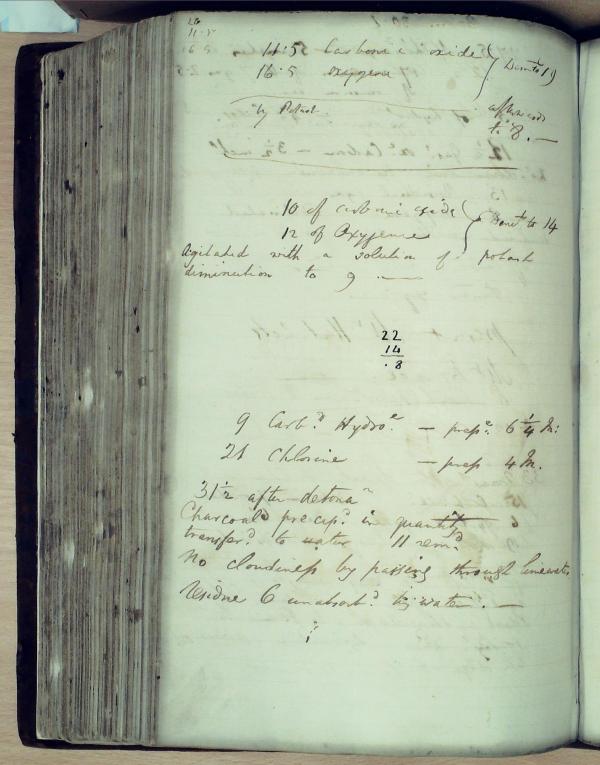 28
11.5
16.5
11.5 Carbonic oxide } Dimd to 19
16.5 oxygene
by Potash afterwards
to 8. —
10 of carbonic oxide } Dimd to 14
12 of Oxygene
Agitated with a solution of potash
diminution to 9 —
22
14
.8
9 Carbd Hydroe — prese 6 1/4 In:
21 Chlorine — press 4 In.
31 1/2 after detonan
Charcoal precipd in quantity
transferd to water 11 remd
No cloudiness by passing through limewater
Residue 6 unabsorbd by water. —